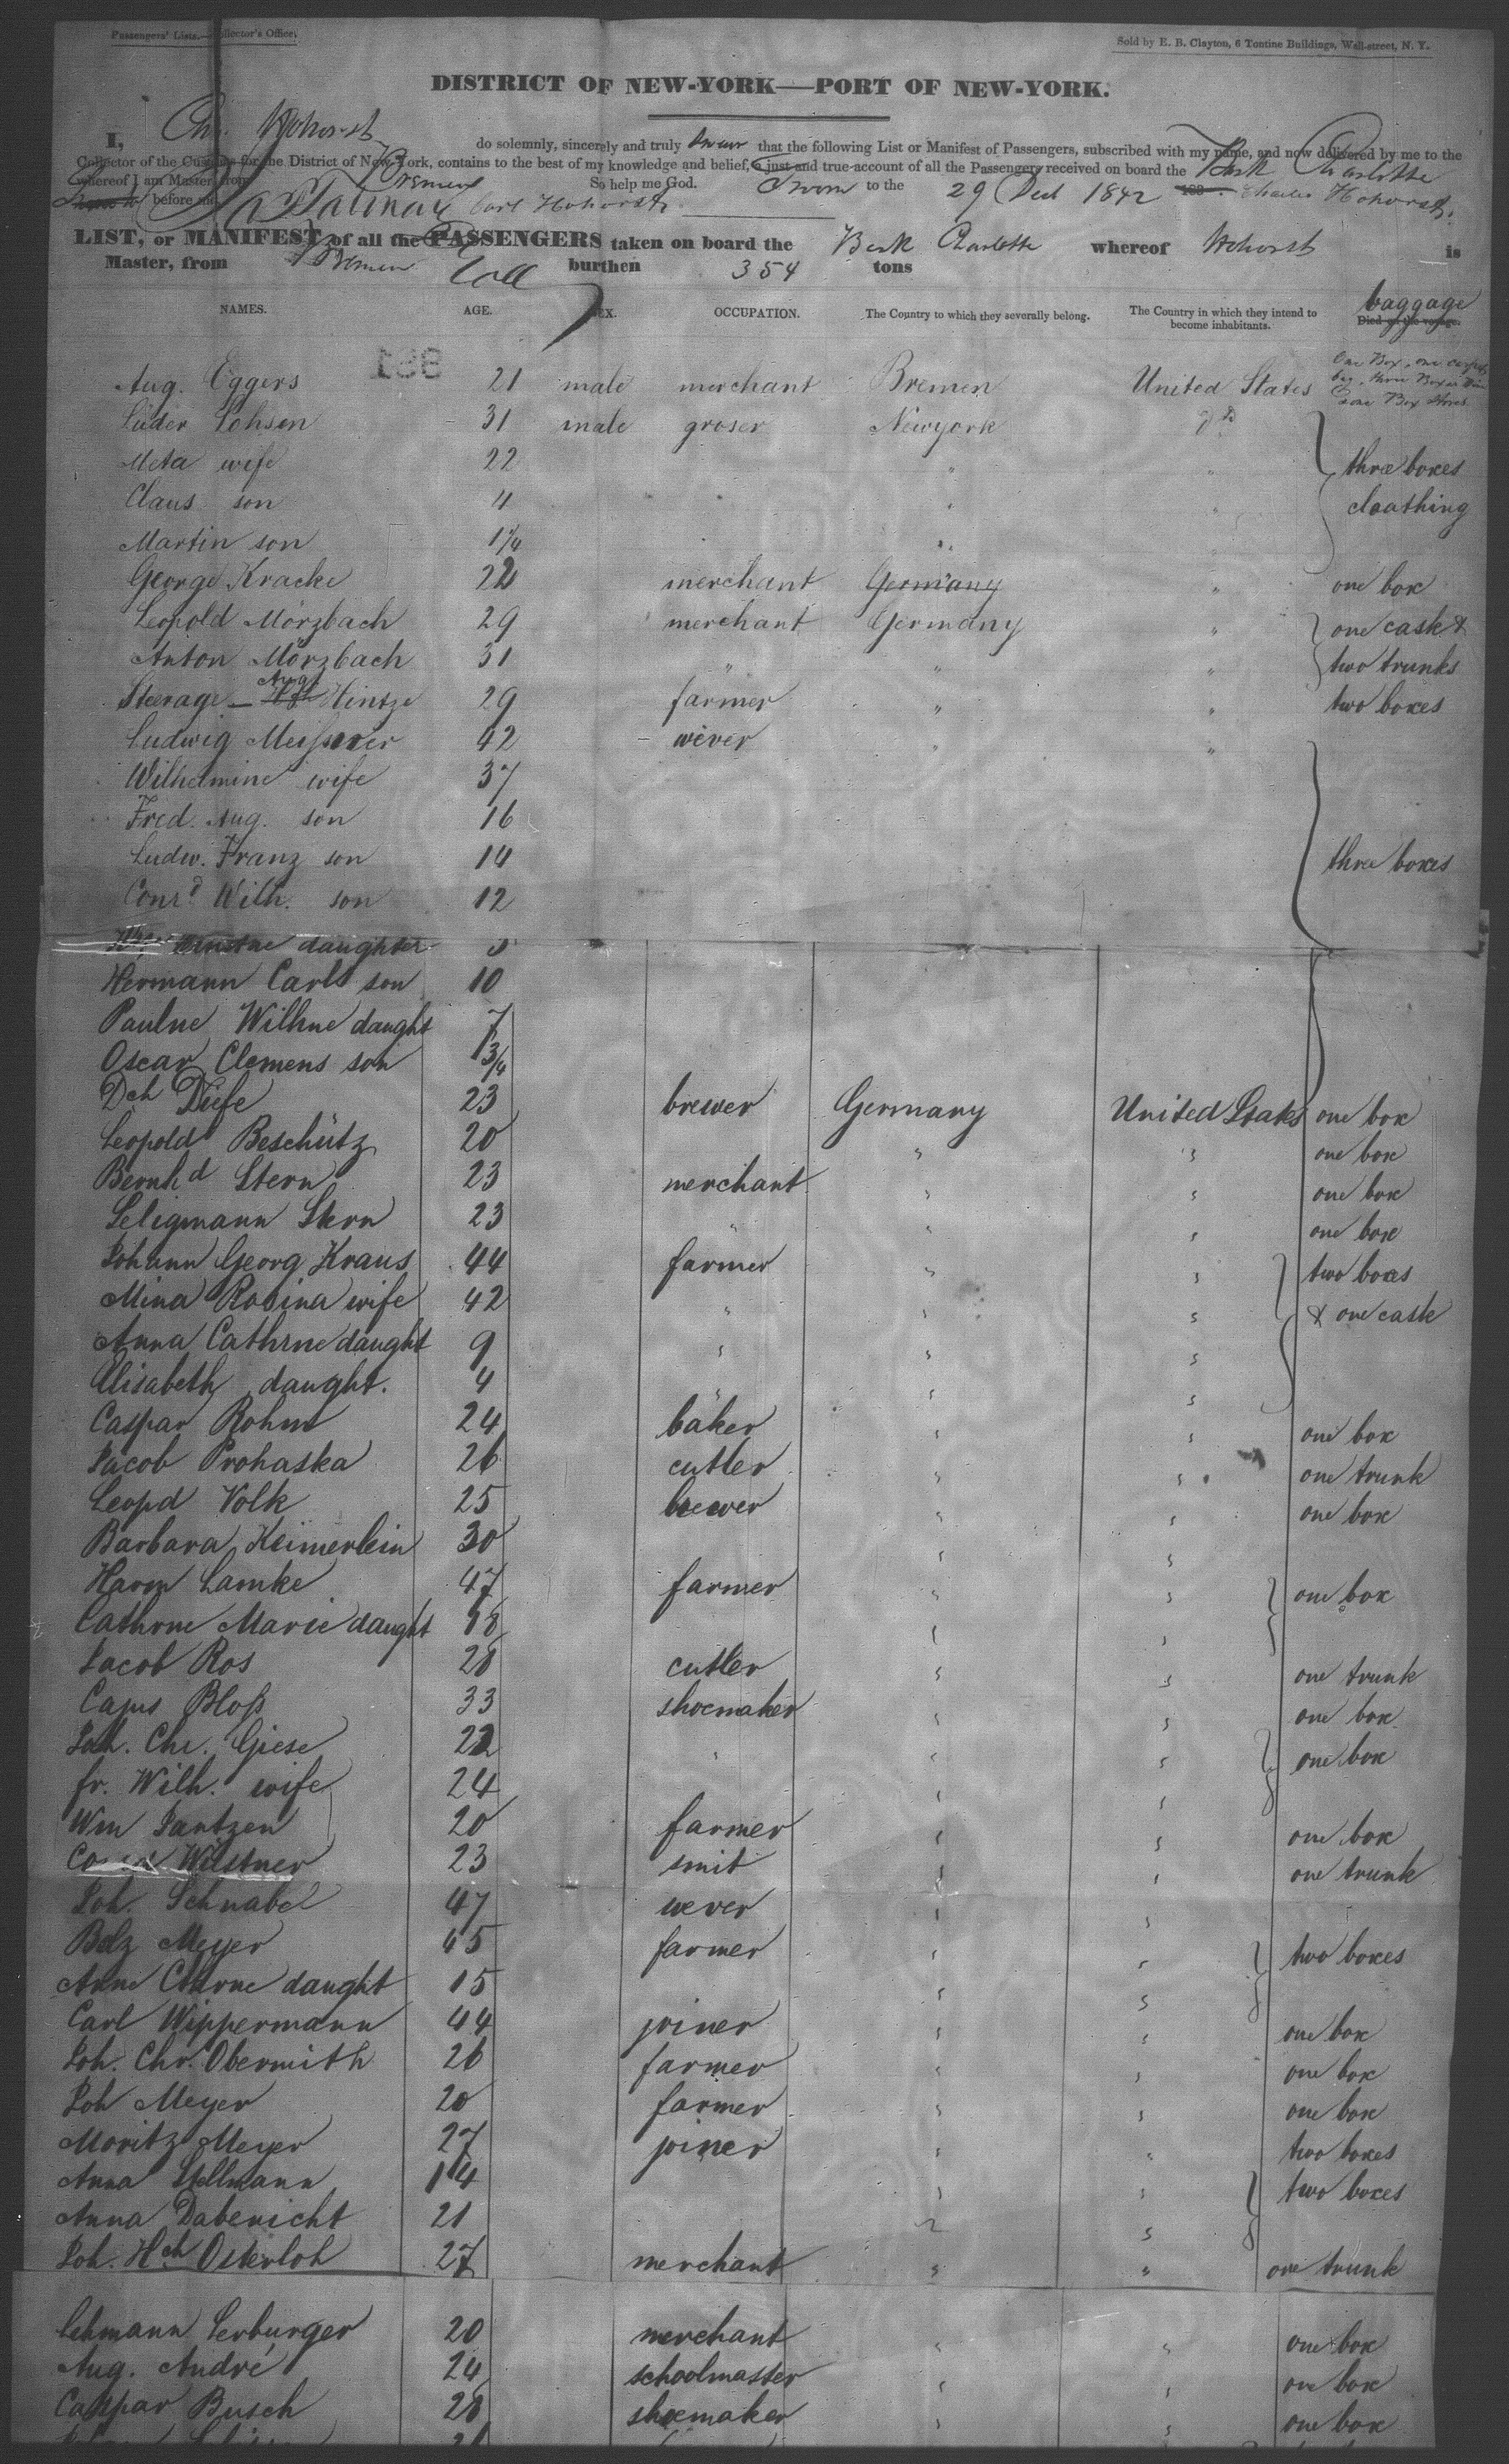 Passengers' Lists.—Collector's Office.
Sold by E. B. Clayton, 6 Tontine Buildings, Wall-street, N. Y.
DISTRICT OF NEW-YORK—PORT OF NEW-YORK.
I, Chr. Hohorst do solemnly, sincerely and truly swear that the following List or Manifest of Passengers, subscribed with my name, and now delivered by me to the
Collector of the Customs for the District of New-York, contains to the best of my knowledge and belief, a just and true account of all the Passengers received on board the Bark Charlotte
whereof I am Master, from Bremen So help me God.
Sworn to the 29 Dect 1842
before me
LIST, or MANIFEST of all the PASSENGERS taken on board the Bark Charlotte whereof Hohorst is
Master, from Bremen burthen 354 tons
NAMES. AGE. SEX. OCCUPATION. The Country to which they severally belong. The Country in which they intend to become inhabitants. baggage Died on the voyage.
198
Aug. Eggers 21 male merchant Bremen United States One Box, one carpet bag, three Boxes one Box
Lüder Lohsen 31 male groser Newyork do
Meta wife 22 " " three boxes
Claus son 4 " " cloathing
Martin son 1 1/4 "
George Kracke 22 merchant Germany " one box
Leopold Mörzbach 29 merchant Germany " one cask &
Anton Mörzbach 31 " " " two trunks
Steerage — Aug Hintze 29 farmer " " two boxes
Ludwig Meissner 42 wever " "
Wilhelmine wife 37
Fred. Aug. son 16
Ludw. Franz son 14 three boxes
Conrd Wilh. son 12
daughter
Hermann Carl son 10
Paulne Wilhne daught 7
Oscar Clemens son 3/4
Dch Diefe 23 brewer Germany United States one box
Leopold Beschütz 20 " " one box
Bernhd Stern 23 merchant " " one box
Seligmann Stern 23 " " " one box
Johann Georg Kraus 44 farmer " " two boxes
Mina Rosina wife 42 " " " & one cask
Anna Cathrne daught 9 " " "
Elisabeth daught. 4 " " "
Caspar Rohm 24 baker " " one box
Jacob Prohaska 26 cutler " " one trunk
Leopd Volk 25 brewer " " one box
Barbara Keimerlein 30 " "
Harm Lamke 47 farmer " " one box
Cathrne Marie daught 18 " "
Jacob Ros 28 cutler " " one trunk
Cajus Bloß 33 shoemaker " " one box
Joh. Chr. Giese 22 " " " one box
fr. Wilh. wife 24 " "
Wm Jantzen 20 farmer " " one box
Wilstner 23 smit " " one trunk
Joh. Schnabel 47 wever " "
Belz Meyer 45 farmer " " two boxes
Anne Cthrne daught 15 " "
Carl Wippermann 44 joiner " " one box
Joh. Chr. Obermith 26 farmer " " one box
Joh Meyer 20 farmer " " one box
Moritz Meyer 27 joiner " " two boxes
Anna Stellmann 14 " " two boxes
Anna Dabenicht 21 " "
Joh. Hch Osterloh 27 merchant " " one trunk
Lehmann Lerburger 20 merchant " " one box
Aug. André 24 schoolmaster " " one box
Caspar Busch 28 shoemaker " " one box